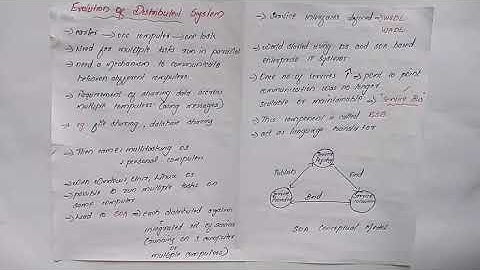 Evolution of Distributed System
→ earlier → one computer → one task
→ Need for multiple tasks run in parallel
→ need a mechanism to communicate
between different computers
→ Requirement of sharing data across
multiple computers (using messages)
→ eg file sharing, database sharing
→ Then came: multitasking os
+ personal computer
→ With Windows, Unix, Linux os
→ possible to run multiple tasks on
same computer
→ Lead to SOA → each distributed system
integrated set of services
(running on 1 computer
or multiple computers)
→ Service interfaces defined → WSDL
WADL
→ World started using DS and SOA based
enterprise IT systems
→ Once no of services ↑ → point to point
communication was no longer
scalable or maintainable → "Service Bus"
→ This component is called ESB
→ act as language translator
Service
Registry
Publish
Find
Service
Provider
Bind
Service
Consumer
SOA Conceptual Model